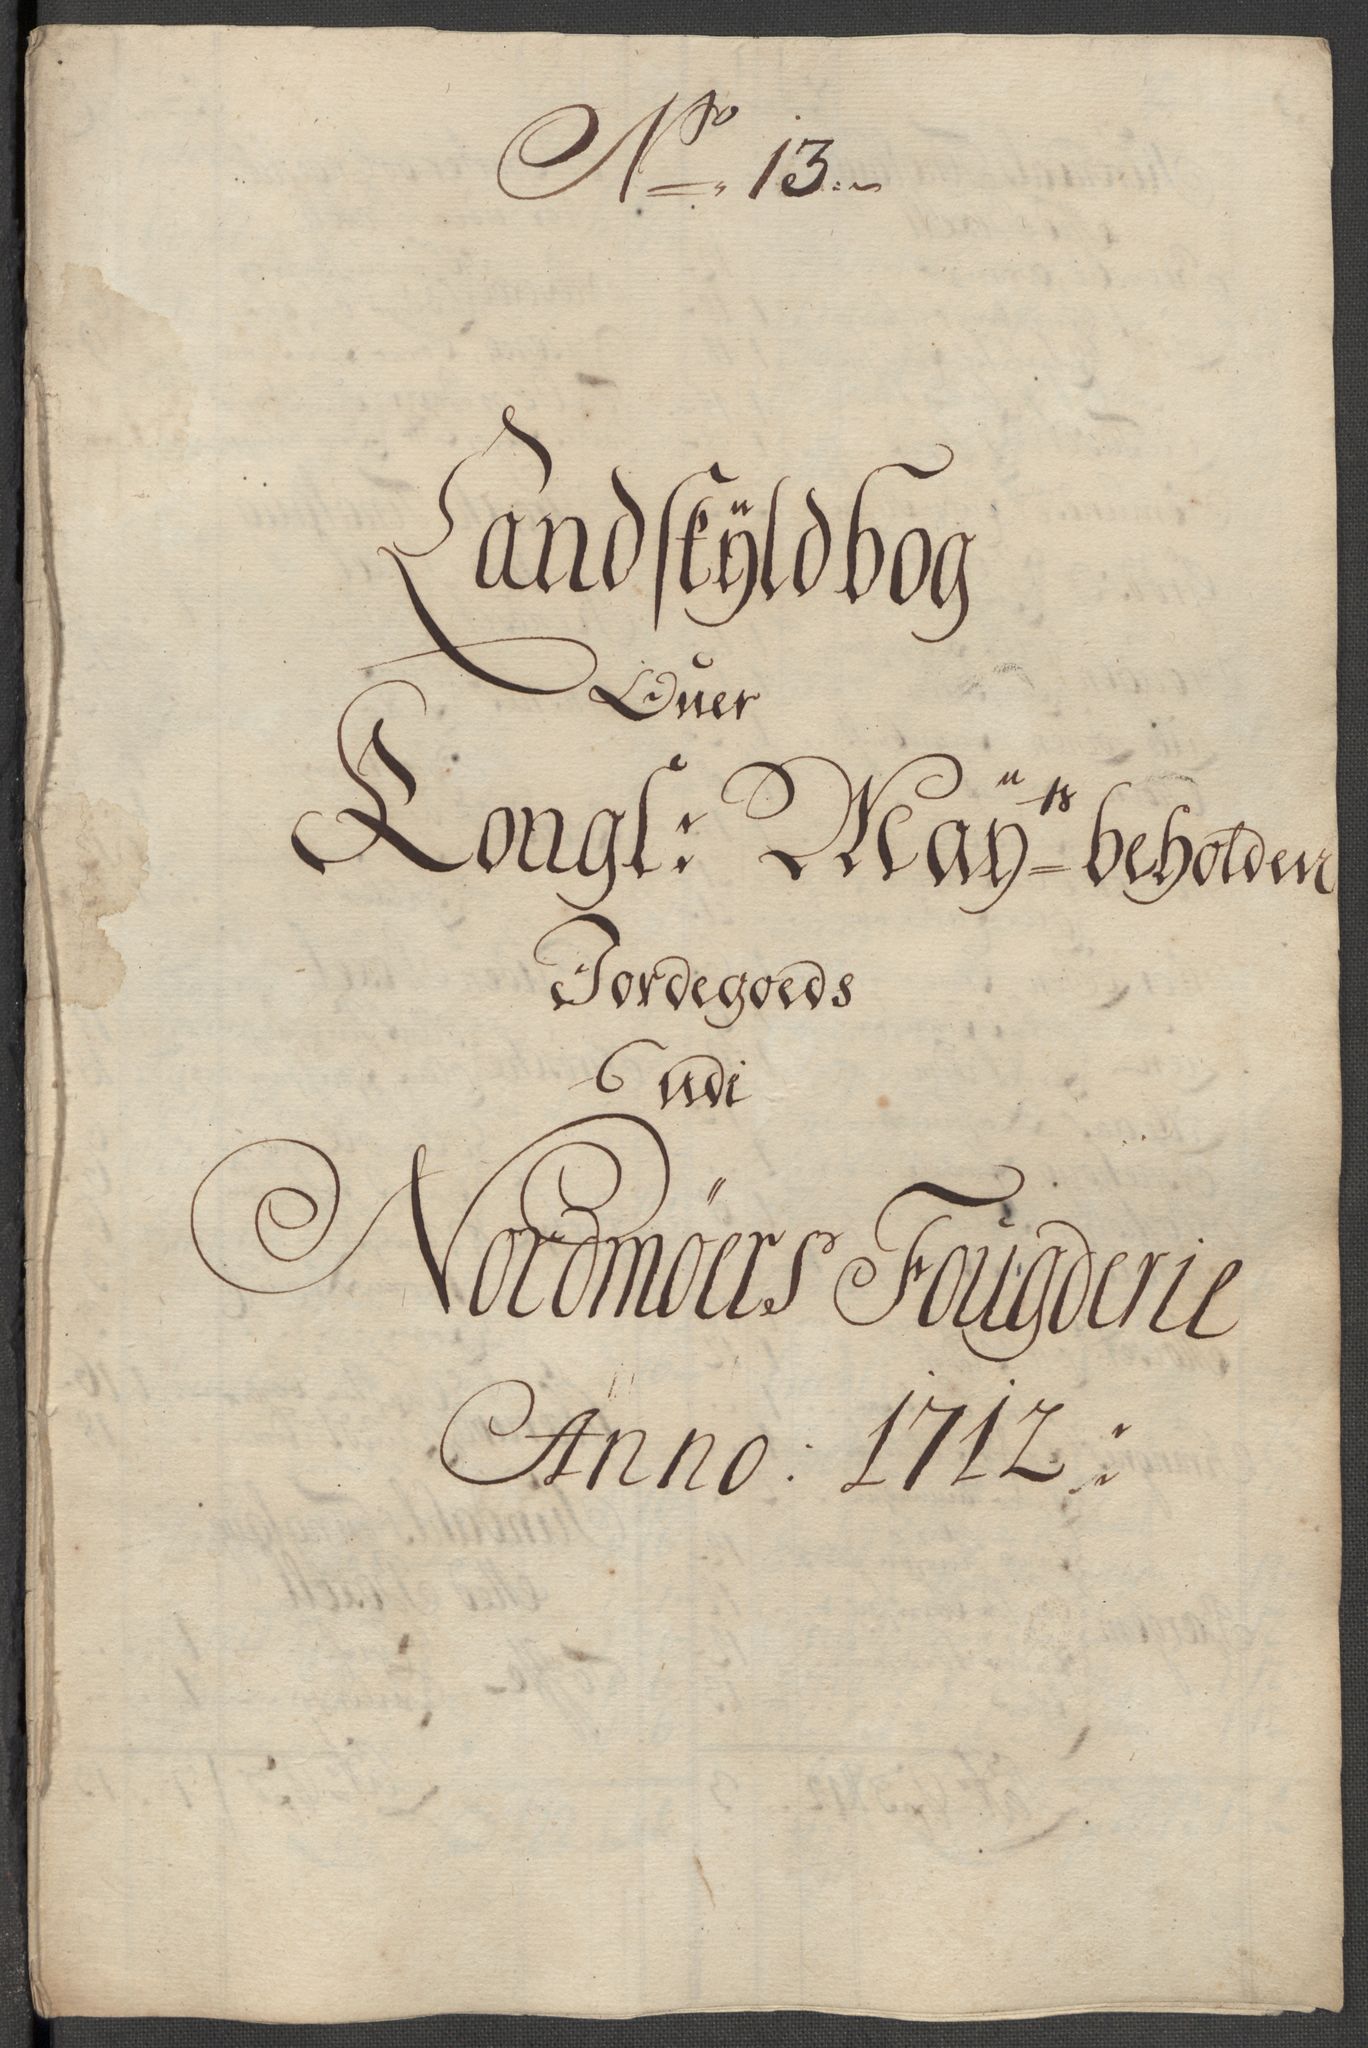 No 13.
Landskÿldbog
Ofuer
Kongl: Maÿts beholden
Jordegoeds
udi
Nordmöers Fougderie
Anno: 1712: